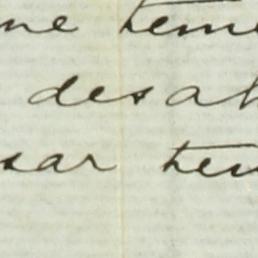 ne teme
desah
sar ten